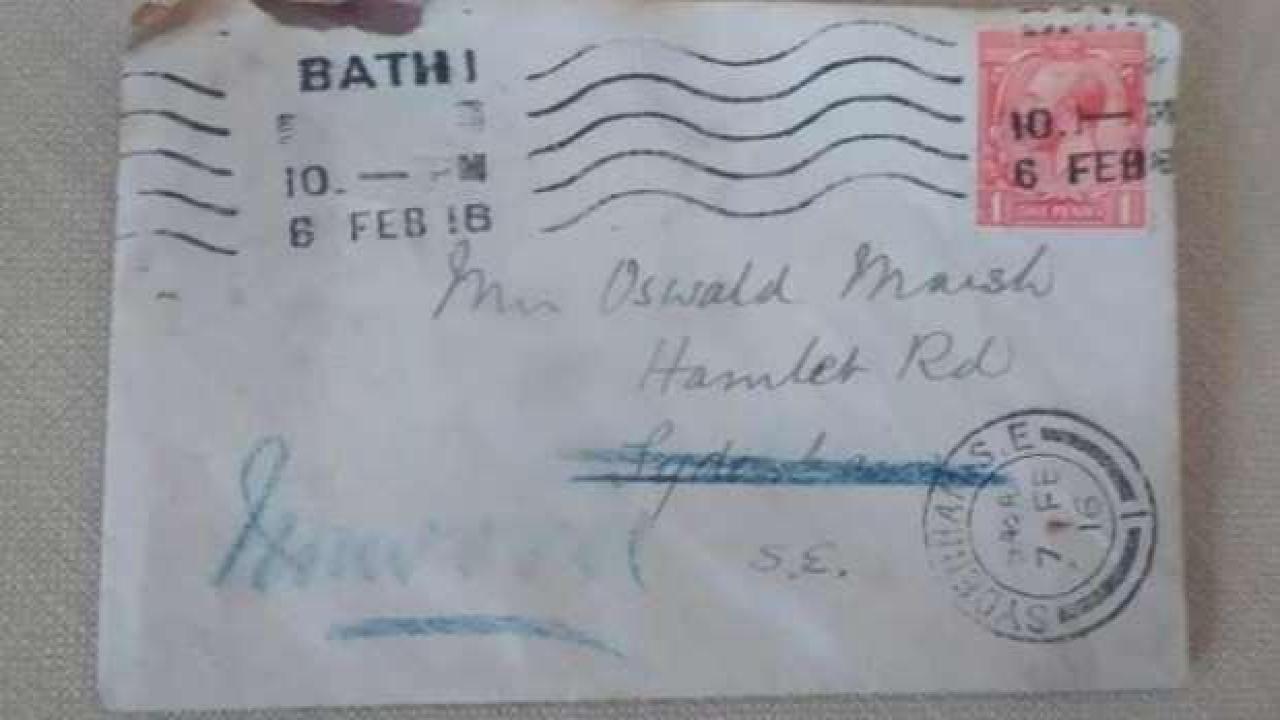 BATH
10. —
6 FEB 16
10. —
6 FEB
1 ONE PENNY 1
Oswald Marsh
Hamlet Rd
Sydenham
Norwood
S.E.
SYDENHAM S.E
7 FE
16